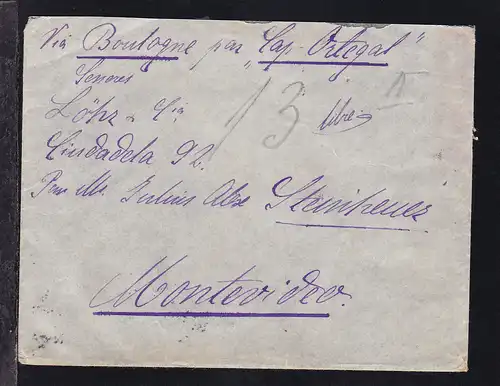 Via Boulogne par "Cap Ortegal"
Senores
Löhr & Cia
Ciudadela 92.
Pour Mr. Julius Alex Steinheuer
Montevideo.
13